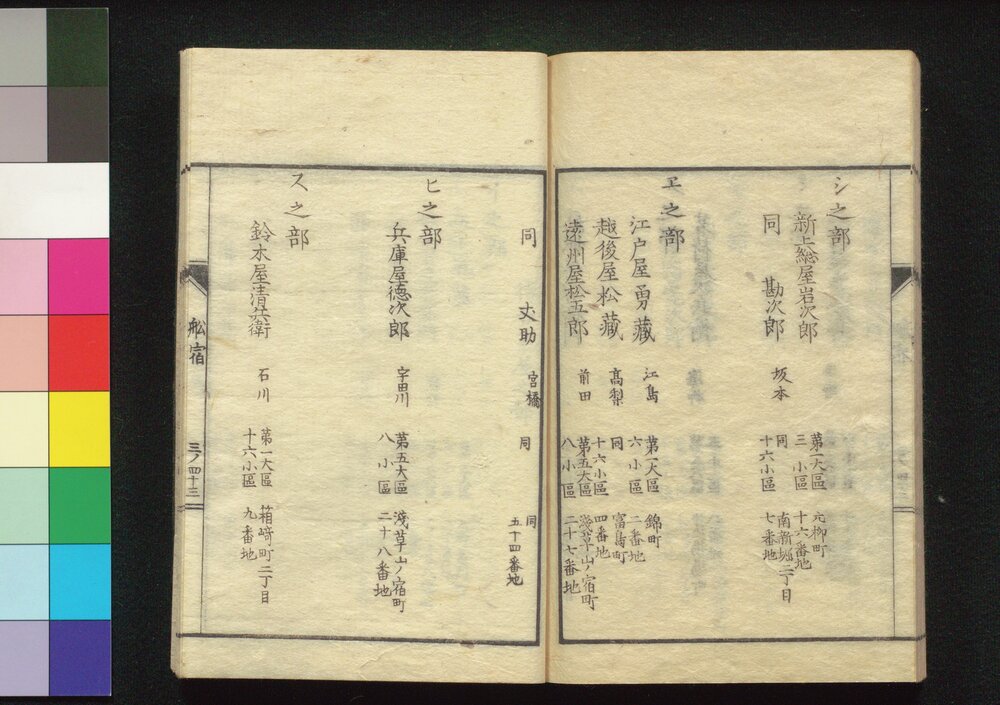 シ之部
新上総屋岩次郎 坂本 第一大區 三小區 元柳町 十六番地
同 勘次郎 同 十六小區 南新堀二丁目 七番地
ヱ之部
江戸屋勇藏 江島 第一大區 六小區 錦町 二番地
越後屋松藏 高梨 同 十六小區 富島町 四番地
遠州屋松五郎 前田 第五大區 八小區 淺草山ノ宿町 二十七番地
同 丈助 宮橋 同 同 五十四番地
ヒ之部
兵庫屋德次郎 宇田川 第五大區 八小區 淺草山ノ宿町 二十八番地
ス之部
鈴木屋清兵衛 石川 第一大區 十六小區 箱﨑町二丁目 九番地
舩宿
三ノ四十三